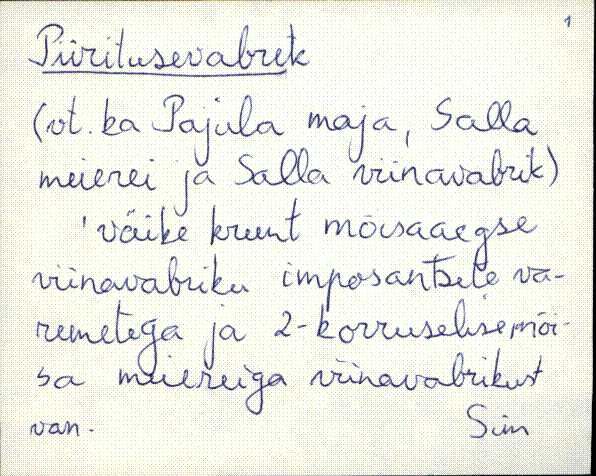 1
Piiritusevabrik
(vt. ka Pajula maja, Salla
meierei ja Salla viinavabrik)
'väike krunt mõisaaegse
viinavabriku imposantsete va-
remetega ja 2-korruselise mõi-
sa meiereiga viinavabrikust
van. Sim